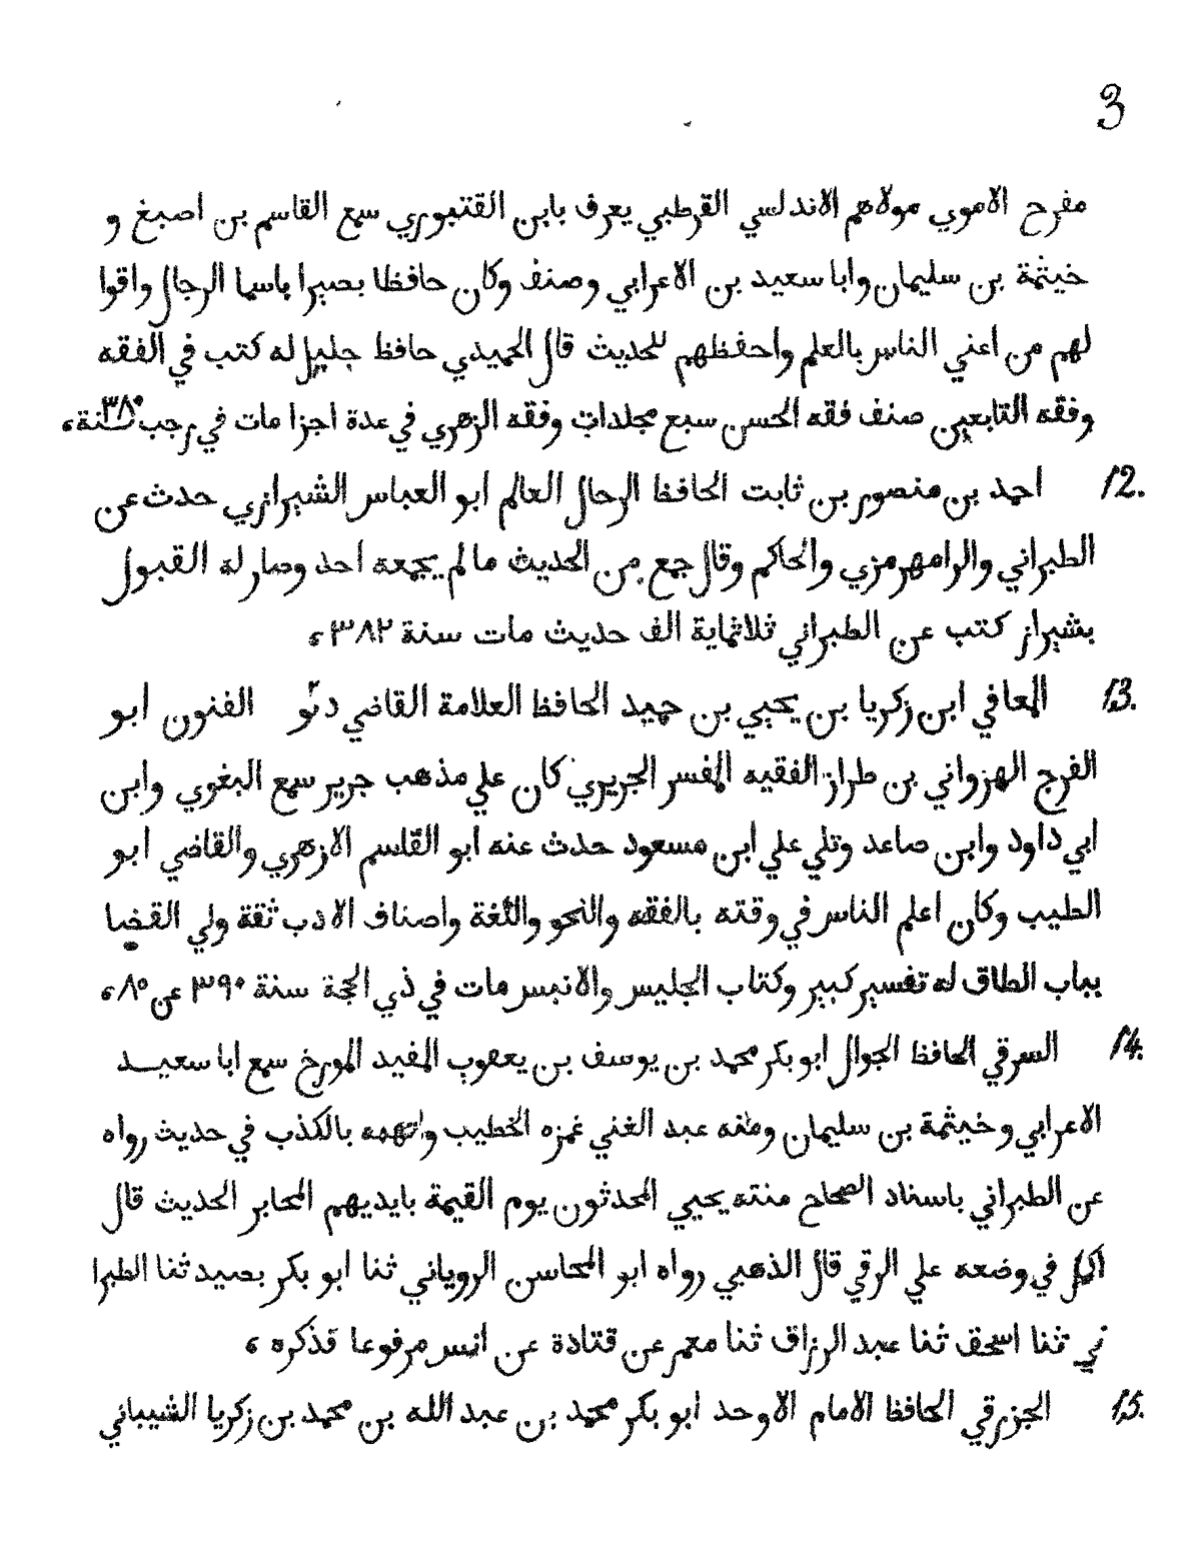 3
مفرح الاموي مولاهم الاندلسي القرطبي يعرف بابن القنتبوري سمع القاسم بن اصبغ و
خيثمة بن سليمان وابا سعيد بن الاعرابي وصنف وكان حافظا بصيرا باسما الرجال واقوا
لهم من اعني الناس بالعلم واحفظهم للحديث قال الحميدي حافظ جليل له كتب في الفقه
وفقه التابعين صنف فقه الحسن سبع مجلدات وفقه الزهري في عدة اجزا مات في رجب سنة ٣٨٠،
12. احمد بن منصور بن ثابت الحافظ الرحال العالم ابو العباس الشيرازي حدث عن
الطبراني والرامهرمزي والحاكم وقال جمع من الحديث ما لم يجمعه احد وصار له القبول
بشيراز كتب عن الطبراني ثلاثماية الف حديث مات سنة ٣٨٢،
13. المعافي ابن زكريا بن يحيي بن حميد الحافظ العلامة القاضي الفنون ابو
الفرج الهزواني بن طراز الفقيه المفسر الجريري كان علي مذهب جرير سمع البغوي وابن
ابي داود وابن صاعد وتلي علي ابن مسعود حدث عنه ابو القاسم الازهري والقاضي ابو
الطيب وكان اعلم الناس في وقته بالفقه والنحو واللغة واصناف الادب ثقة ولي القضا
بباب الطاق له تفسير كبير وكتاب الجليس والانيس مات في ذي الحجة سنة ٣٩٠ عن ٨٥،
14. السرقي الحافظ الجوال ابو بكر محمد بن يوسف بن يعقوب المفيد المورخ سمع ابا سعيد
الاعرابي وخيثمة بن سليمان ومنه عبد الغني غمزه الخطيب واتهمه بالكذب في حديث رواه
عن الطبراني باسناد الصحاح منته يحيي المحدثون يوم القيمة بايديهم المحابر الحديث قال
في وضعه علي الرقي قال الذهبي رواه ابو المحاسن الروياني ثنا ابو بكر بصيد ثنا الطبرا
ني ثنا اسحق ثنا عبد الرزاق ثنا معمر عن قتادة عن انس مرفوعا فذكره ،
15. الجزرقي الحافظ الامام الاوحد ابو بكر محمد بن عبد الله بن محمد بن زكريا الشيباني